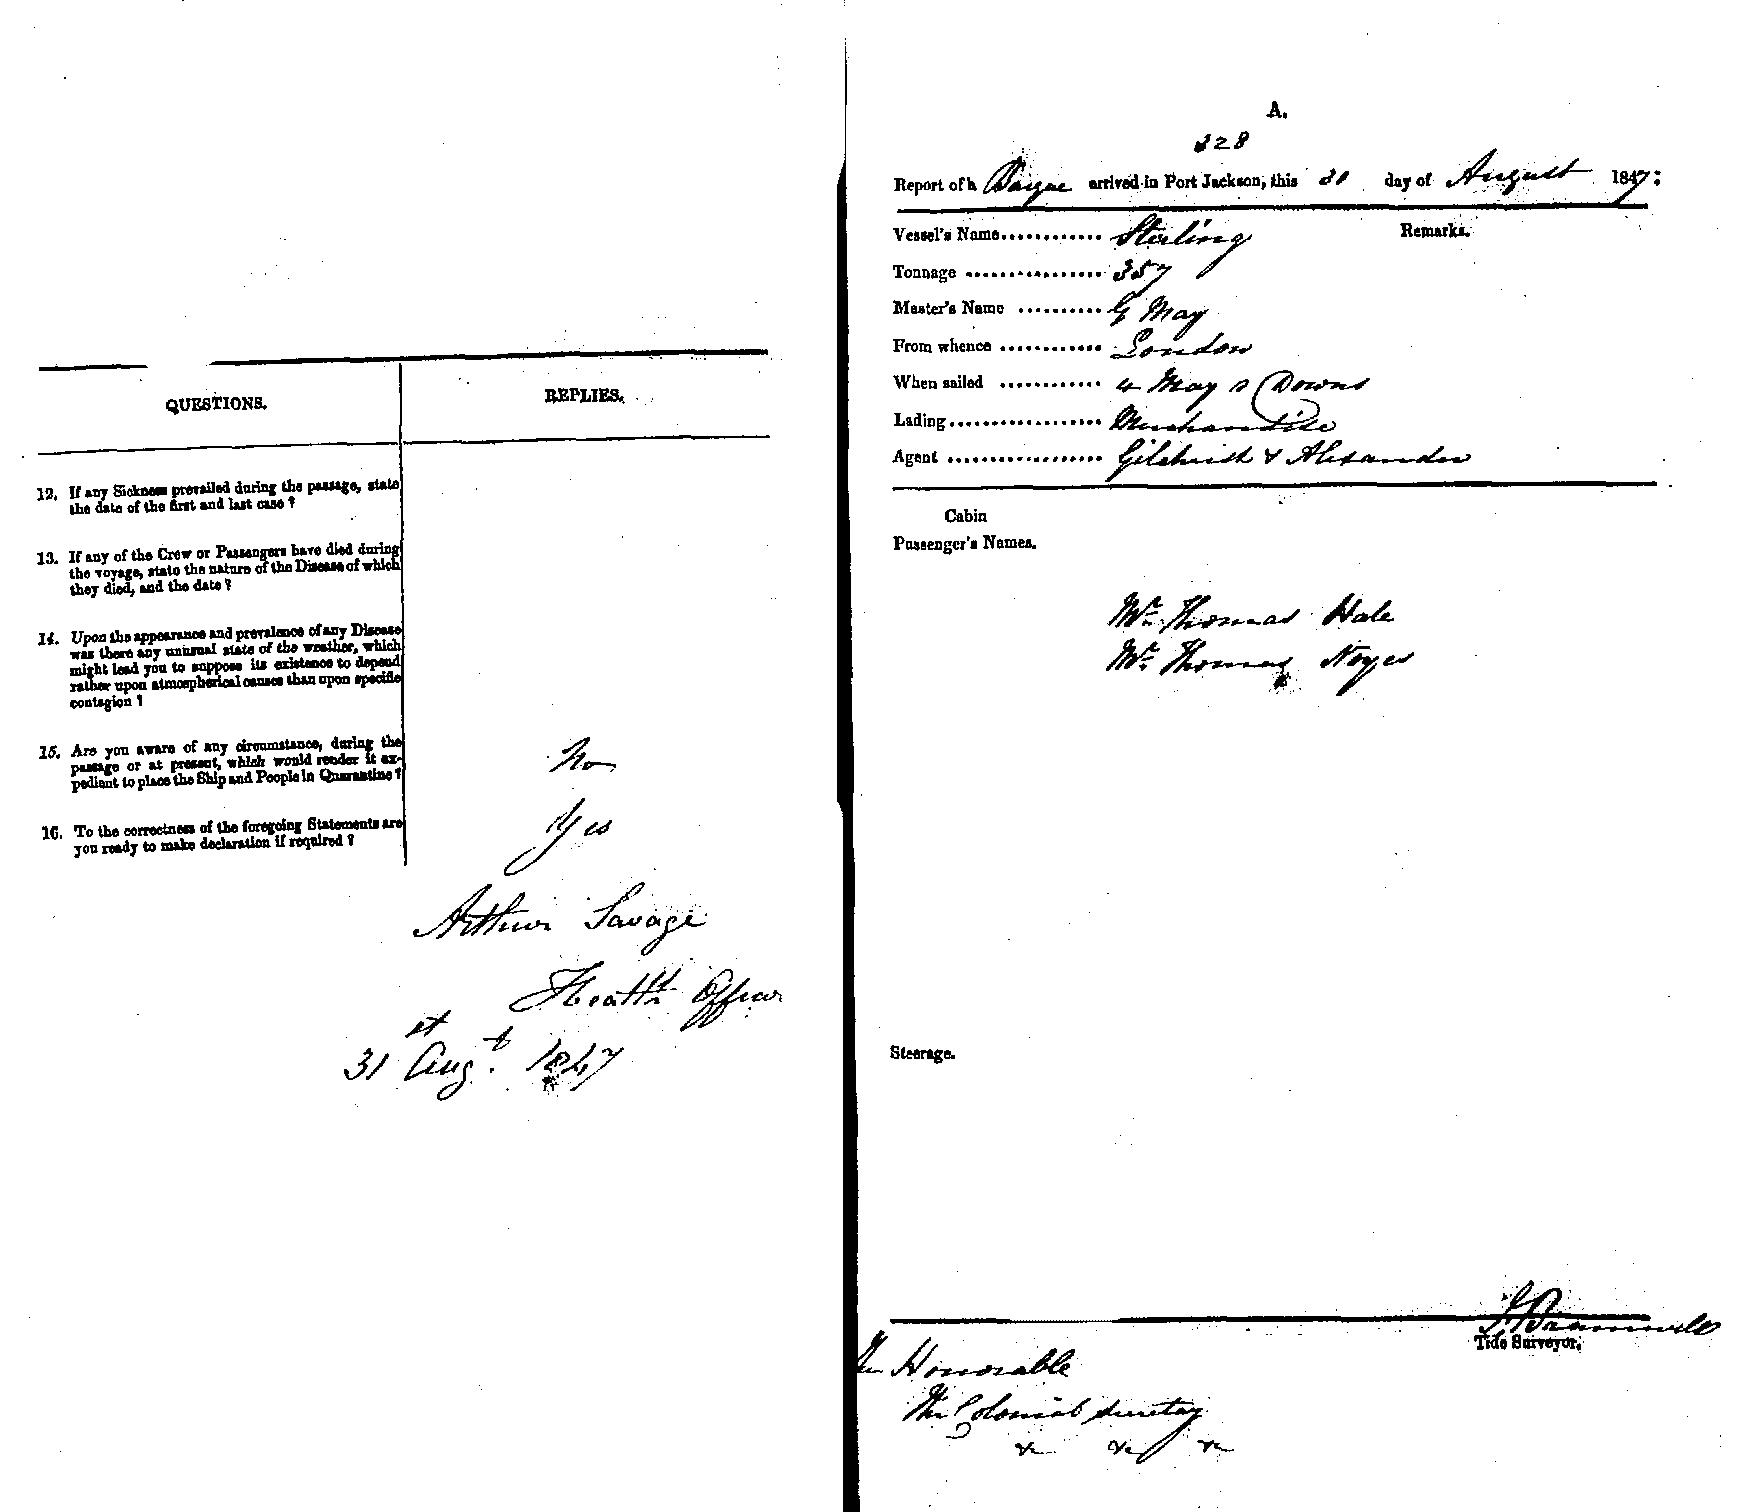 QUESTIONS.
REPLIES.
12. If any Sickness prevailed during the passage, state
the date of the first and last case?
13. If any of the Crew or Passengers have died during
the voyage, state the nature of the Disease of which
they died, and the date?
14. Upon the appearance and prevalence of any Disease
was there any unusual state of the weather, which
might lead you to suppose its existence to depend
rather upon atmospherical causes than upon specific
contagion?
15. Are you aware of any circumstance, during the
passage or at present, which would render it ex-
pedient to place the Ship and People in Quarantine?
No
16. To the correctness of the foregoing Statements are
you ready to make declaration if required?
Yes
Arthur Savage
Health Officer
31st Augt. 1847
A.
328
Report of a Barque arrived in Port Jackson, this 31 day of August 1847:
Vessel's Name............ Sterling
Remarks.
Tonnage ................ 357
Master's Name .......... G May
From whence ............ London
When sailed ............ 4 May Downs
Lading.................. Merchandise
Agent .................. Gilchrist & Alexander
Cabin
Passenger's Names.
Mr. Thomas Hale
Mr. Thomas Noyes
Steerage.
Bramwell
Tide Surveyor.
The Honorable
The Colonial Secretary
&c &c &c